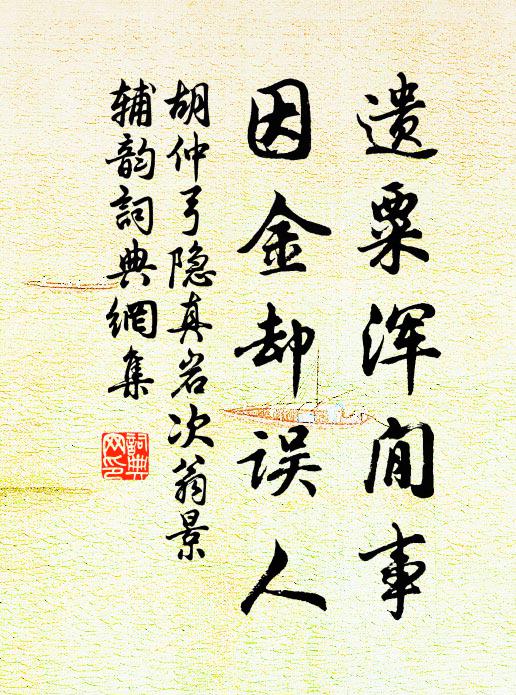 遗粟浑闲事
因金却误人
胡仲弓隐真岩次翁景
辅韵词典網集
詞典网印